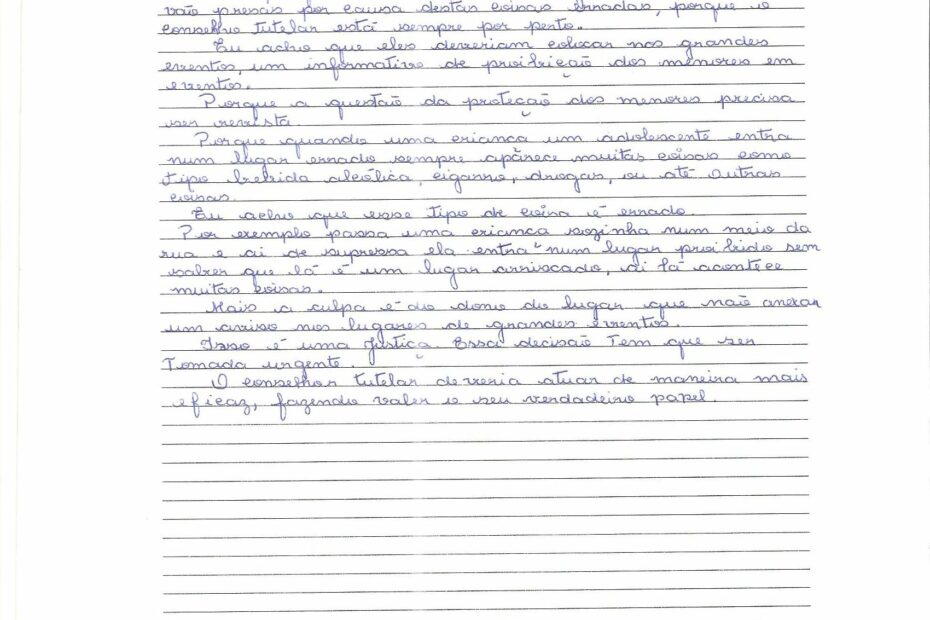 vão presas por causa destas coisas erradas, porque o
conselho tutelar está sempre por perto.
Eu acho que eles deveriam colocar nos grandes
eventos, um informativo de proibicão dos menores em
eventos.
Porque a questão da protecão dos menores precisa
ser revista.
Porque quando uma crianca um adolescente entra
num lugar errado sempre aparece muitas coisas como
tipo bebida alcólica, cigarro, drogas, ou até outras
coisas.
Eu acho que esse tipo de coisa é errado.
Por exemplo passa uma crianca sozinha num meio da
rua e ai de supressa ela entra num lugar proibido sem
saber que lá é um lugar arriscado, ai lá acontece
muitas coisas.
Mais a culpa é do dono do lugar que não anexar
um aviso nos lugares de grandes eventos.
Isso é uma justica. Essa decisão tem que ser
tomada urgente.
O conselhor tutelar deveria atuar de maneira mais
eficaz, fazendo valer o seu verdadeiro papel.